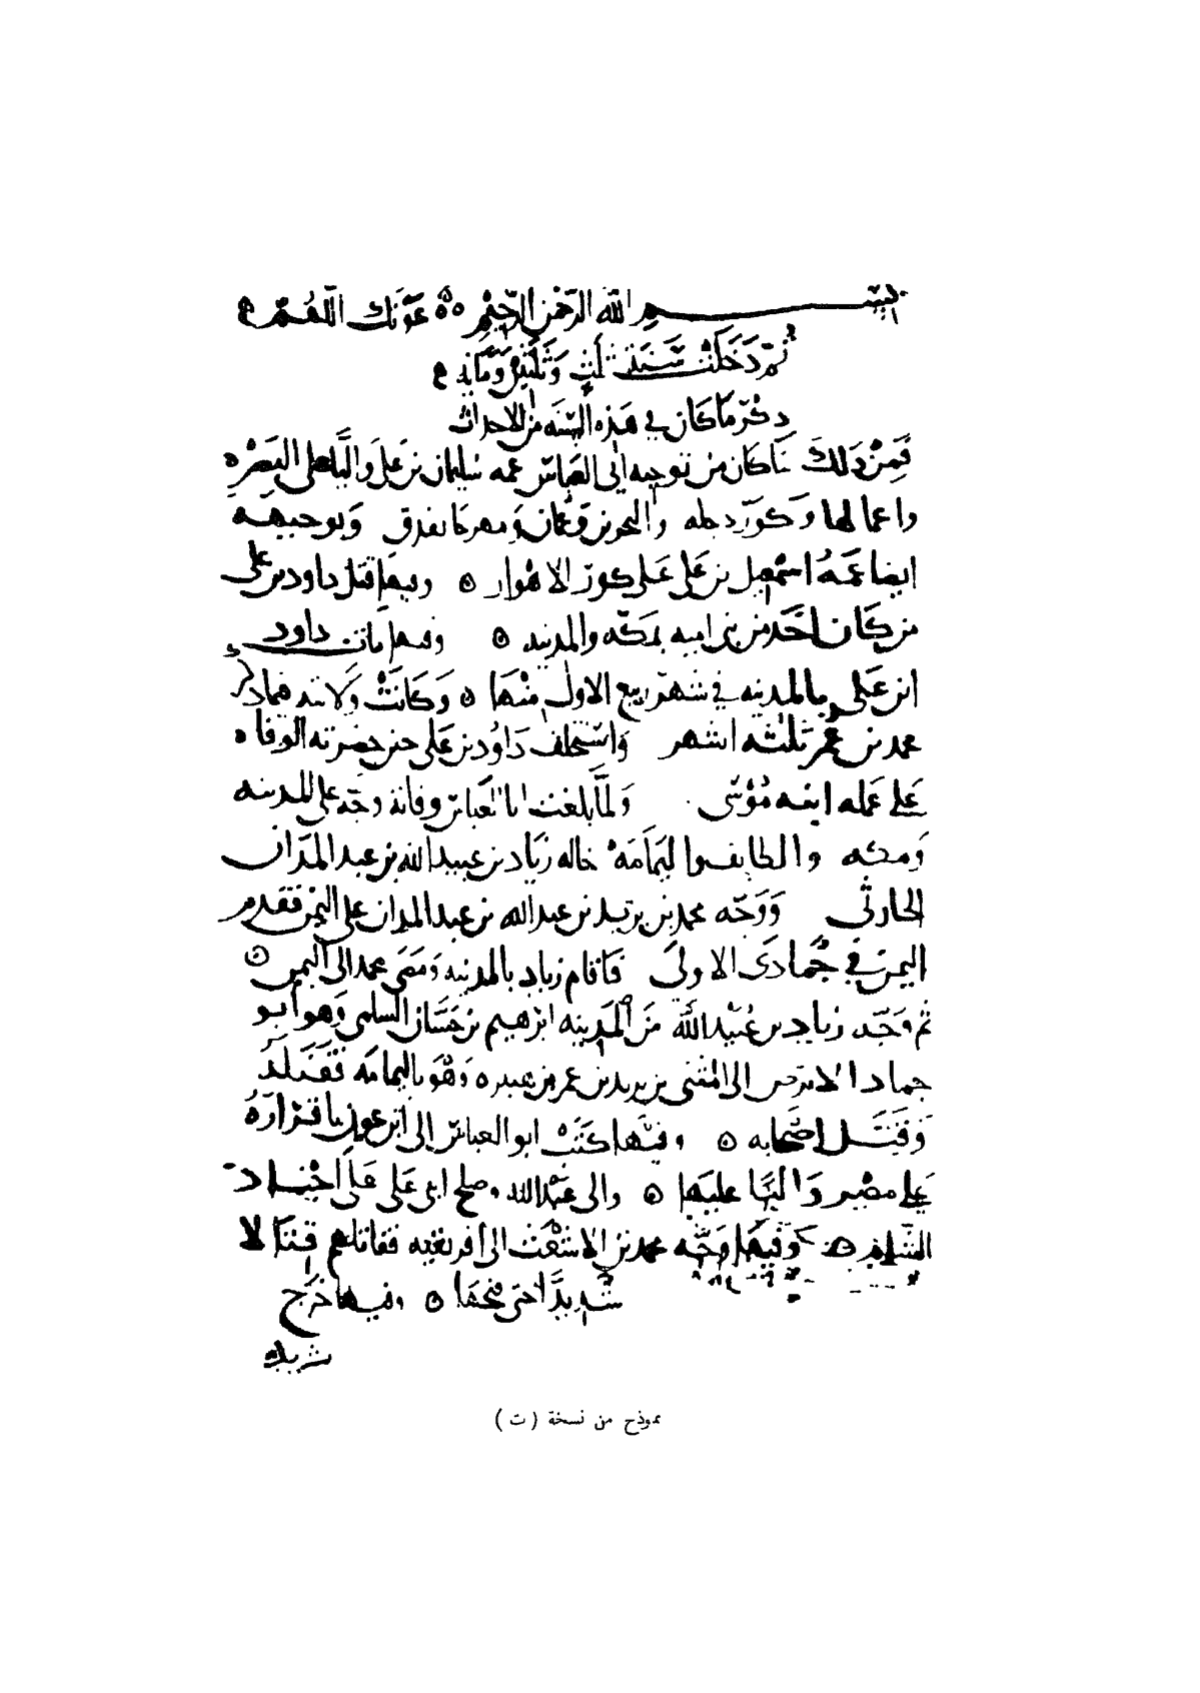 بسم الله الرحمن الرحيم ه عونك اللهم
ثم دخلت سنة ثلث وثلثين ومائة
ذكر ما كان في هذه السنه من الاحداث
فمن ذلك ما كان من توجيه ابي العباس عمه سليمان بن علي واليا على البصره
واعمالها وكور دجله والبحرين وعمان ومهرجانقدق وتوجيهه
ايضا عمه اسمعيل بن علي على كور الاهواز ه وفيها قتل داود بن علي
من كان اخذ من بني اميه بمكه والمدينه ه وفيها مات داود
ابن علي بالمدينه في شهر ربيع الاول منها ه وكانت ولايته فيما ذكر
محمد بن عمر ثلثه اشهر واستخلف داود بن علي حين حضرته الوفاه
على عمله ابنه موسى ولما بلغت ابا العباس وفاته وجه على المدينه
ومكه والطايف واليمامة خاله زياد بن عبيد الله بن عبد المدان
الحارثي ووجه محمد بن يزيد بن عبد الله بن عبد المدان على اليمن فقدم
اليمن في جمادى الاولى فاقام زياد بالمدينه ومضى محمد الى اليمن ه
ثم وجه زياد بن عبيد الله من المدينه ابرهيم بن حسان السلمي وهو ابو
حماد الابرص الى المثنى بن يزيد بن عمر بن هبيره وهو باليمامه فقتله
وقتل اصحابه ه وفيها كتب ابو العباس الى ابي عون باقراره
على مصر واليا عليها ه والى عبد الله وصلح ابني علي على اجناد
الشام ه وفيها وجه محمد بن الاشعث الى افريقيه فقاتلهم قتالا
شديدا حتى فتحها ه وفيها خرج
شريك
نموذج من نسخة (ت)